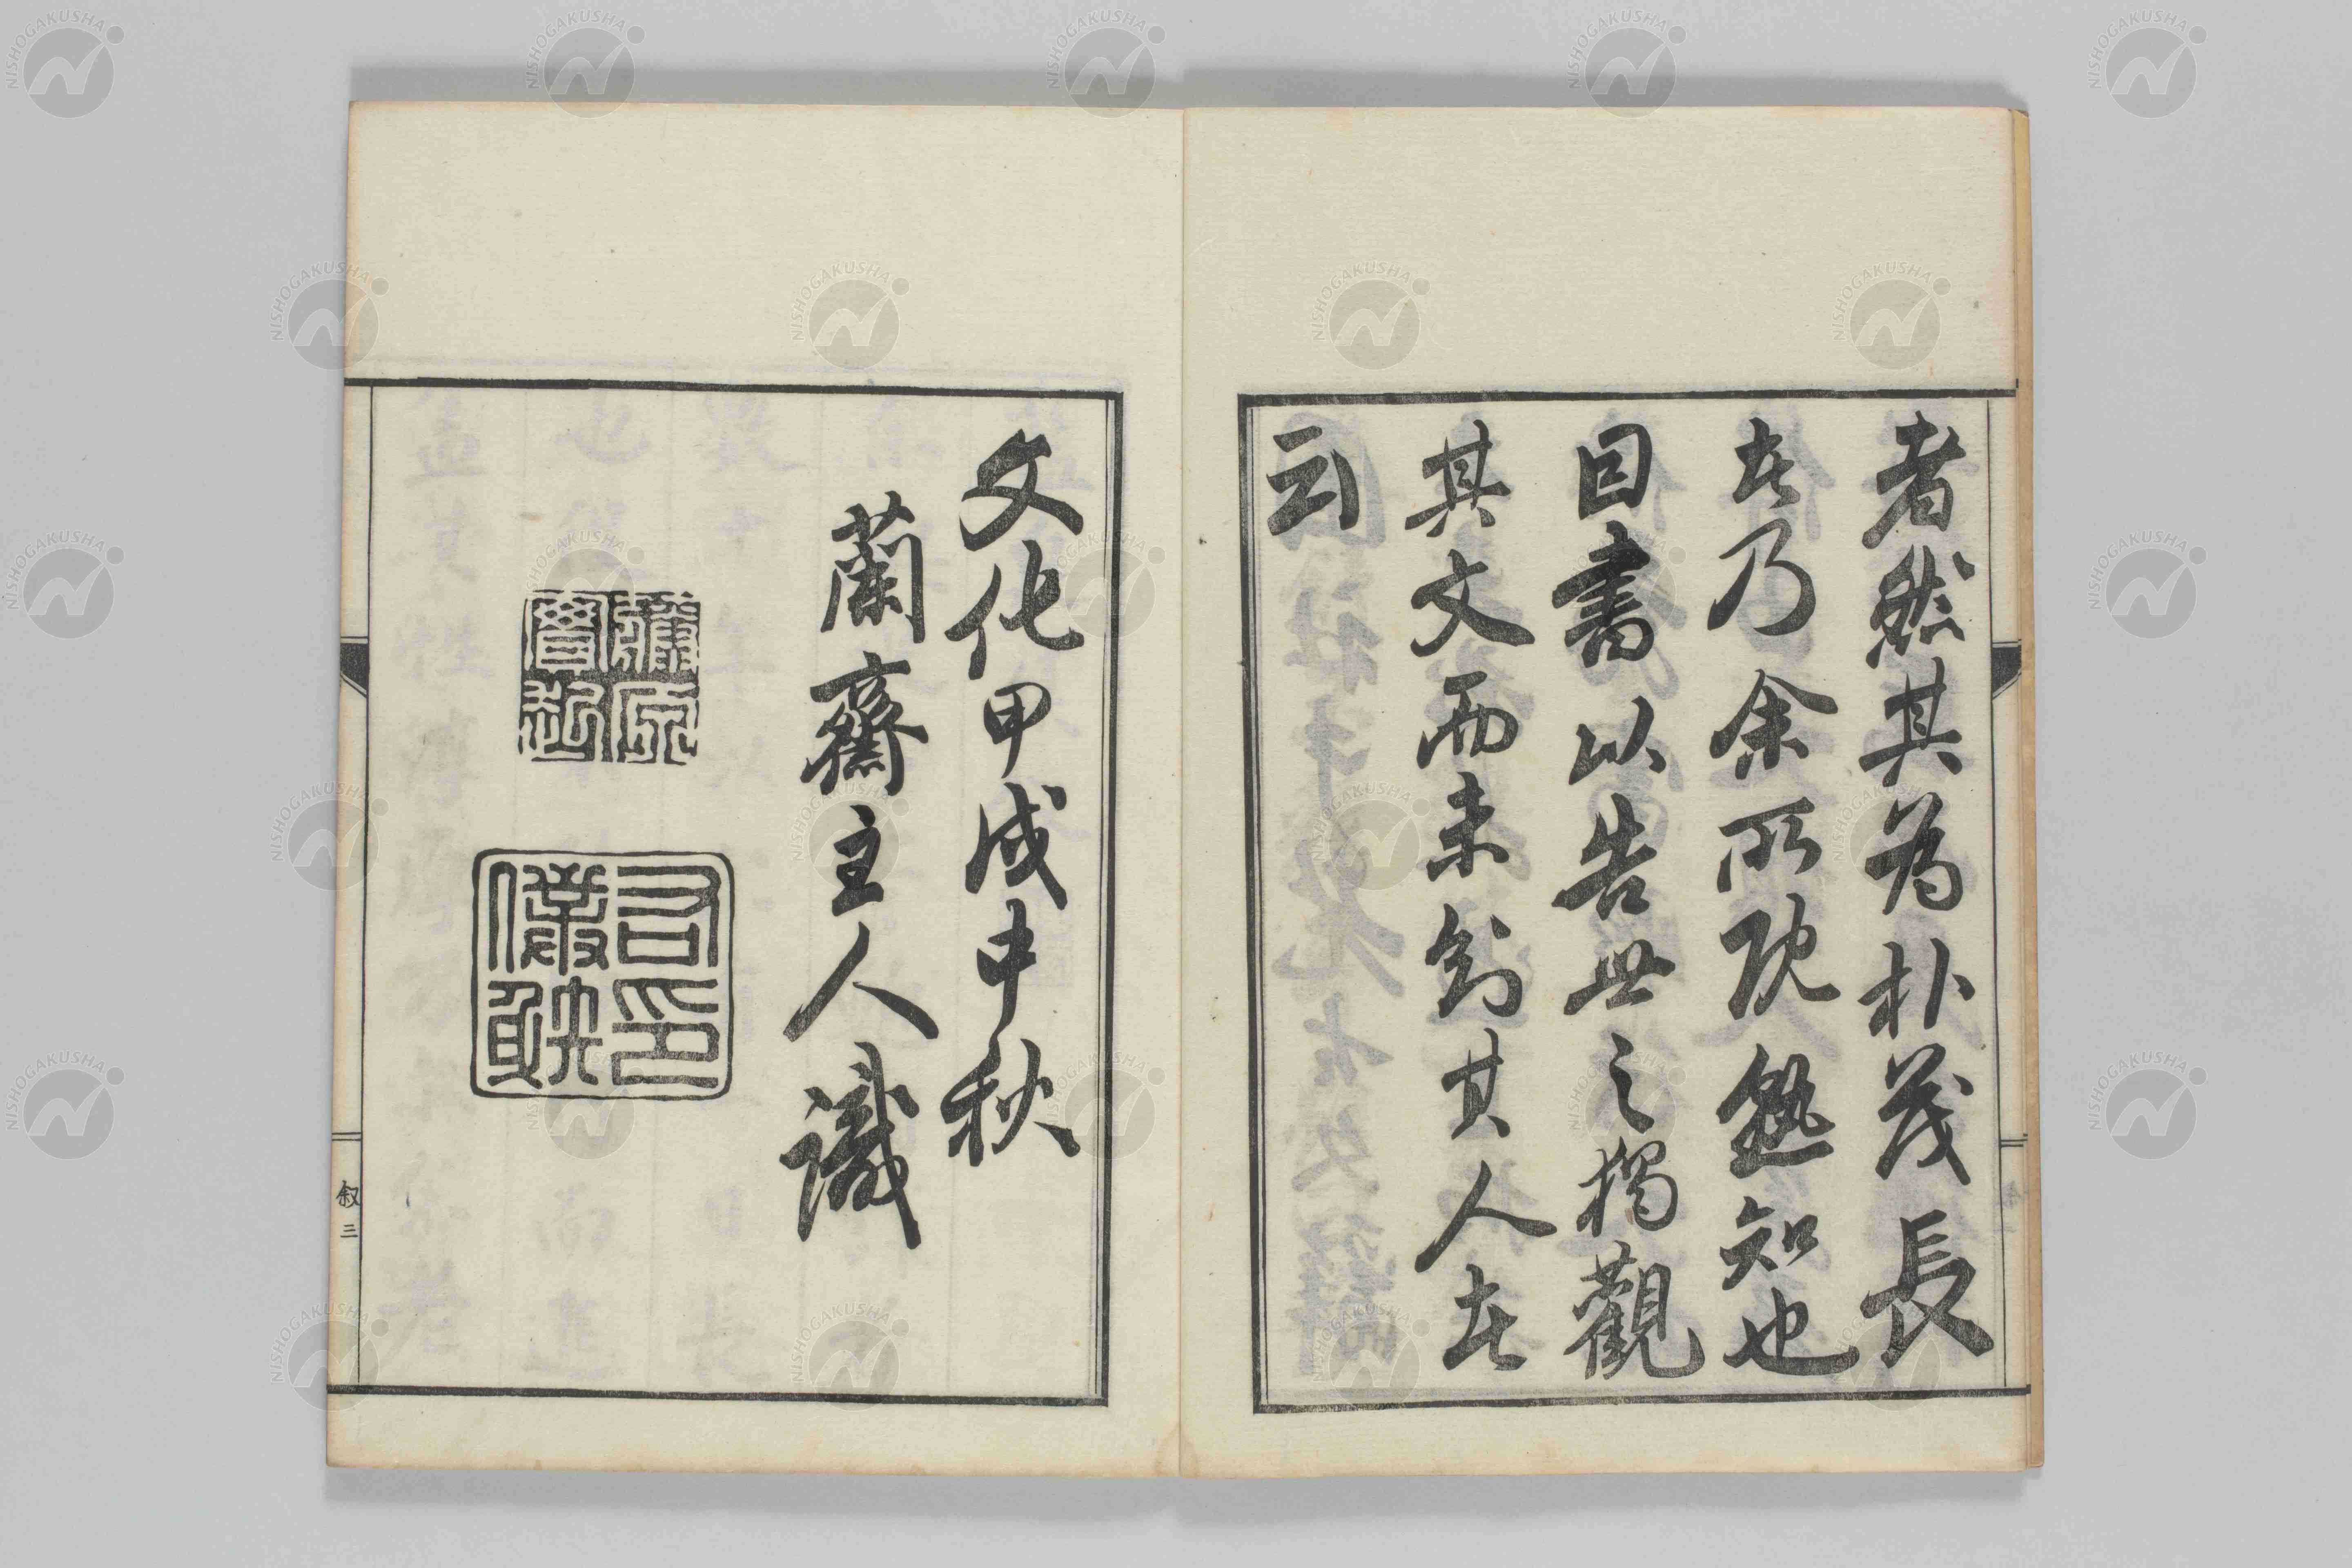 者然其為朴茂長
者乃余所既熟知也
因書以告世之獨觀
其文而未知其人者
云
文化甲戌中秋
蘭齋主人識
叙三
NISHOGAKUSHA